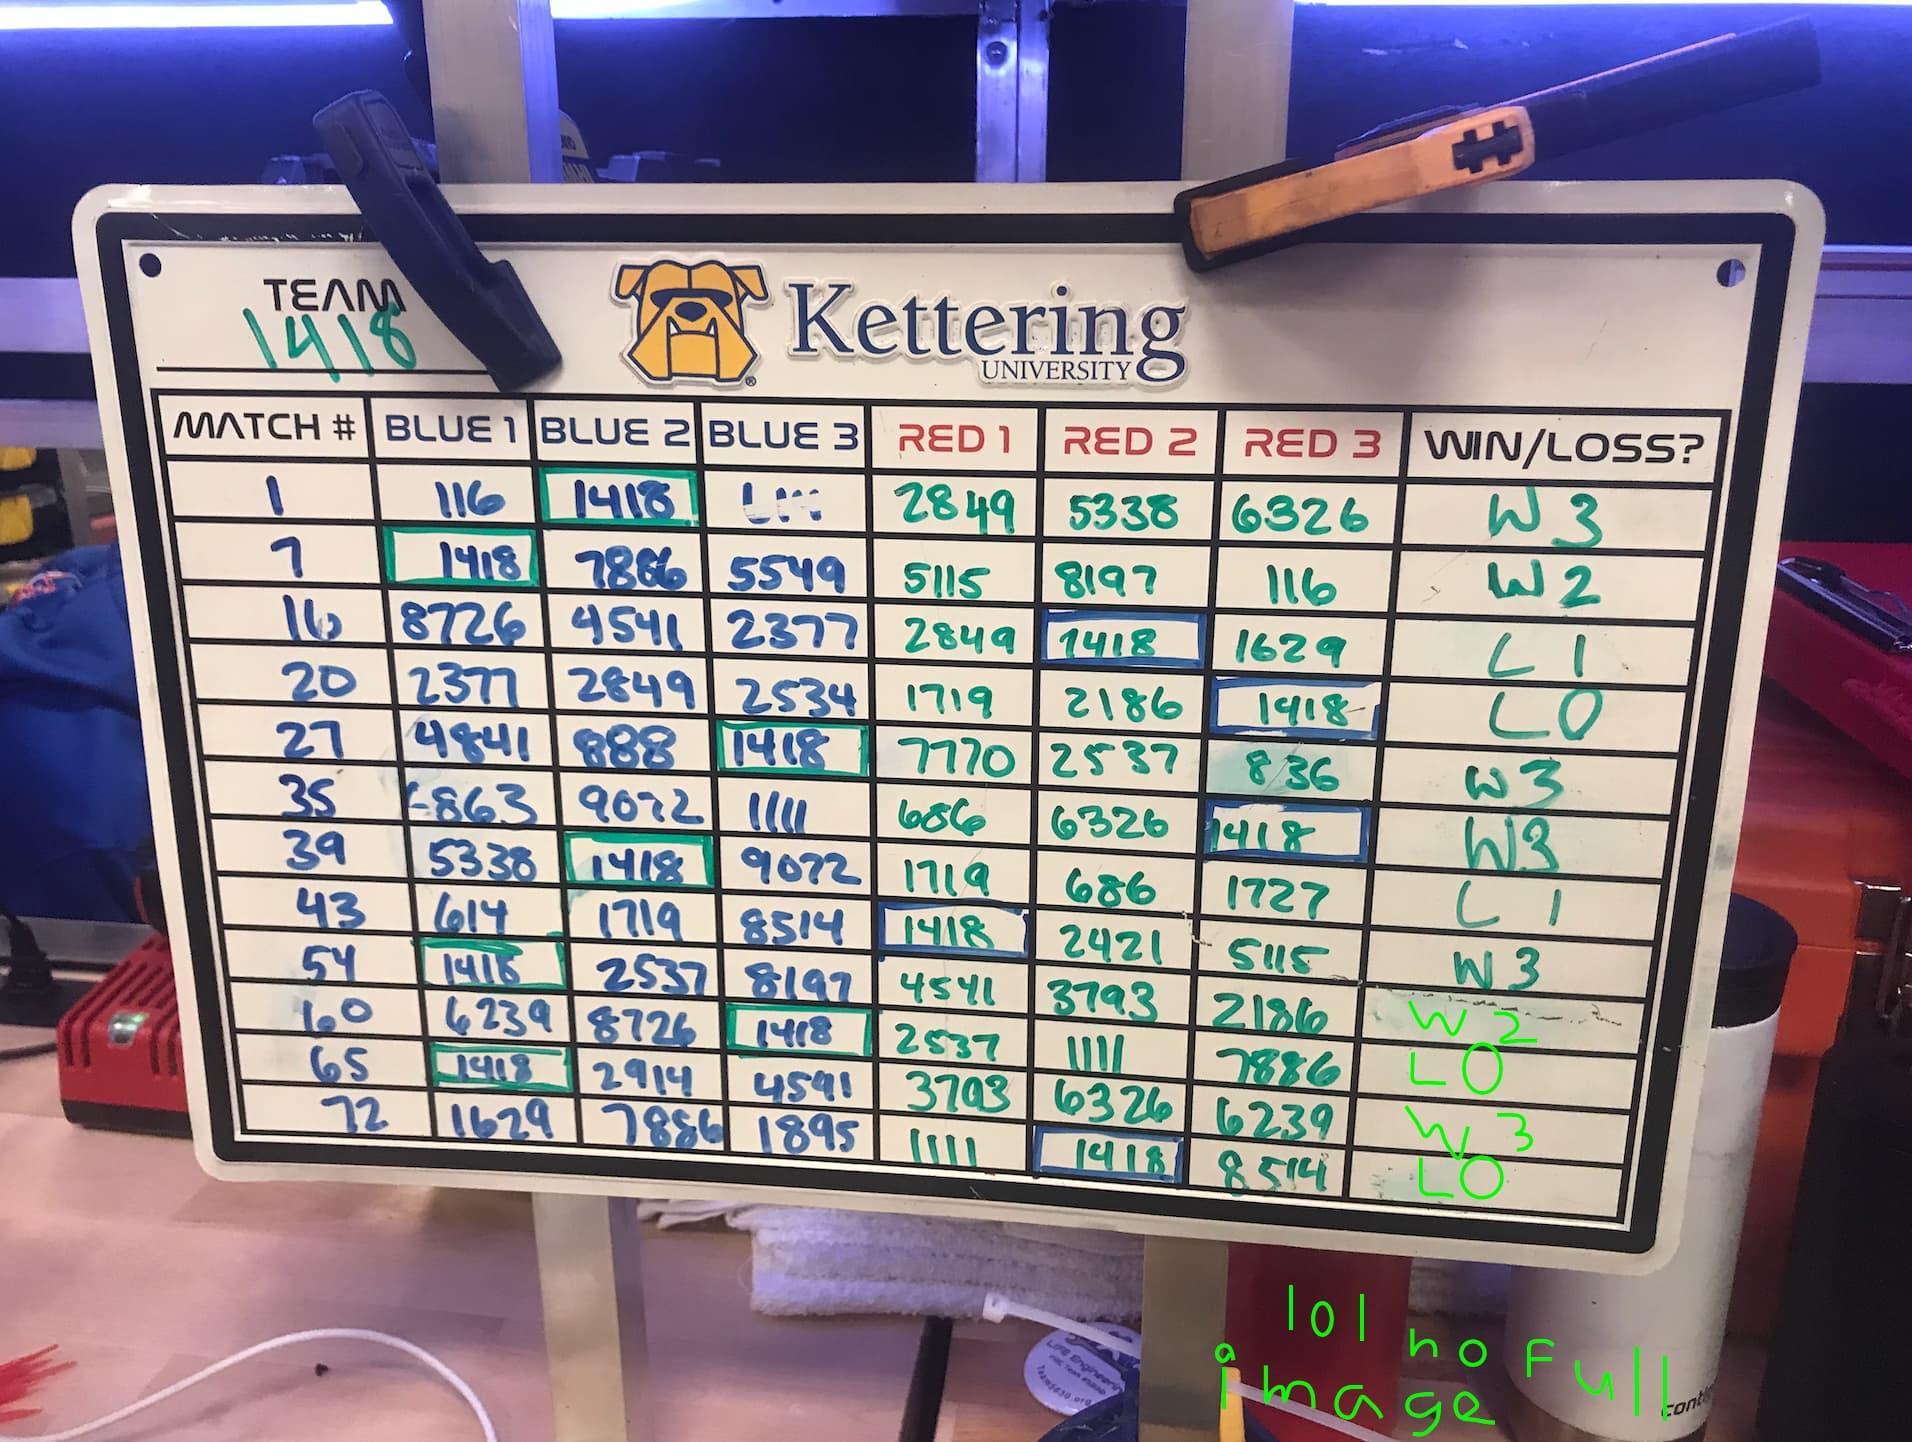 TEAM
1418
Kettering
UNIVERSITY
MATCH # BLUE 1 BLUE 2 BLUE 3 RED 1 RED 2 RED 3 WIN/LOSS?
1 116 1418 2849 5338 6326 W 3
7 1418 7886 5549 5115 8197 116 W 2
16 8726 4541 2377 2849 1418 1629 L 1
20 2377 2849 2534 1719 2186 1418 L 0
27 4841 888 1418 7770 2537 836 W 3
35 6863 9072 1111 686 6326 1418 W3
39 5338 1418 9072 1719 686 1727 L 1
43 614 1719 8514 1418 2421 5115 W 3
54 1418 2537 8197 4541 3793 2186 W 2
60 6239 8726 1418 2537 1111 7886 L 0
65 1418 2914 4541 3793 6326 6239 W 3
72 1629 7886 1895 1111 1418 8514 L 0
lol no Full
image
LIFE Engineering